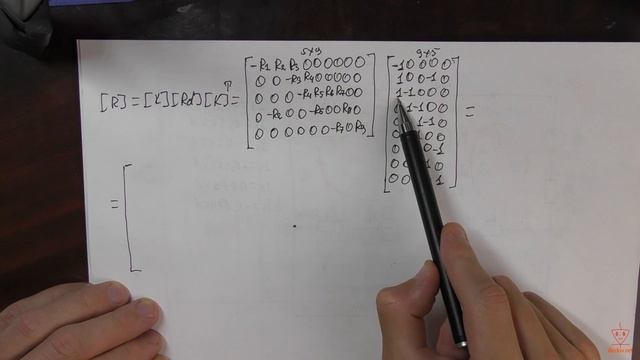 5×9 9×5
[R]=[K][Rd][K]ᵀ=
-R1 R2 R3 0 0 0 0 0 0
0 0 -R3 R4 0 0 0 0 0
0 0 0 -R4 R5 R6 R7 0 0
0 -R2 0 0 -R5 0 0 R8 0
0 0 0 0 0 0 -R7 0 R9
-1 0 0 0 0
1 0 0 -1 0
1 -1 0 0 0
-1 -1 0 0
-1 -1 0
0 0
0 -1
0 0 0
0 0 1
=
=